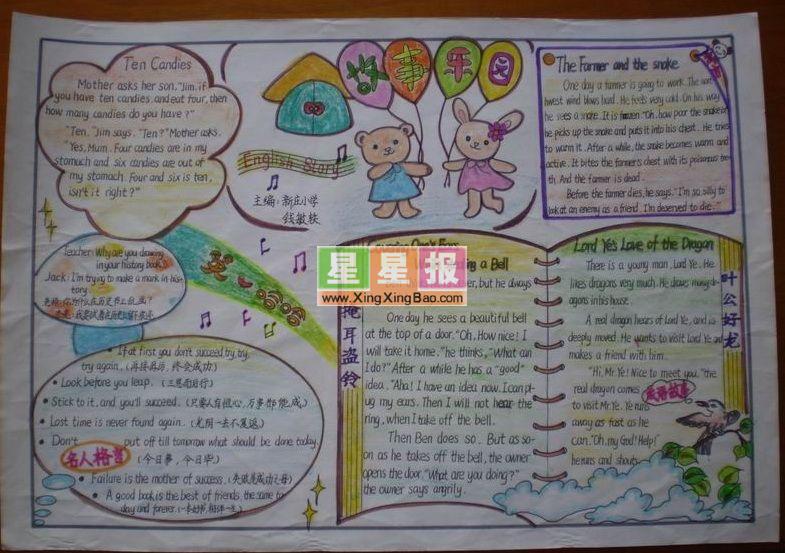 Ten Candies
Mother asks her son, "Jim, if
you have ten candies, and eat four, then
how many candies do you have?"
"Ten." Jim says. "Ten?" Mother asks.
"Yes, Mum. Four candies are in my
stomach and six candies are out of
my stomach. Four and six is ten,
isn't it right?"
故事乐园
English Story
主编:新庄小学
钱敏轶
The Farmer and the snake
One day a farmer is going to work. The nort
hwest wind blows hard. He feels very cold. On his way
he sees a snake. It is frozen. "Oh, how poor the snake is!"
he picks up the snake and puts it into his chest. He tries
to warm it. After a while, the snake becomes warm and
active. It bites the farmer's chest with its poisonous teeth
th. And the farmer is dead.
Before the farmer dies, he says, "I'm so silly to
look at an enemy as a friend. I'm deserved to die."
Teacher: Why are you drawing
in your history book?
Jack: I'm trying to make a mark in his-
tory.
星星报
www.XingXingBao.com
If at first you don't succeed try, try,
try again. (再接再厉,终会成功)
Look before you leap. (三思而后行)
Stick to it, and you'll succeed. (只要人有恒心,万事都能成)
Lost time is never found again. (光阴一去不复返)
Don't put off till tomorrow what should be done today.
(今日事,今日毕)
名人格言
Failure is the mother of success. (失败是成功之母)
A good book is the best of friends, the same to
day and forever.
掩耳盗铃
Covering One's Ears
a Bell
but he always
One day he sees a beautiful bell
at the top of a door. "Oh, How nice! I
will take it home." he thinks, "What can
I do?" After a while he has a "good"
idea. "Aha! I have an idea now. I can pl
ug my ears. Then I will not hear the
ring, when I take off the bell.
Then Ben does so. But as so-
on as he takes off the bell, the owner
opens the door. "What are you doing?"
the owner says angrily.
Lord Ye's Love of the Dragon
There is a young man, Lord Ye. He
likes dragons very much. He draws many d-
agons in his house.
A real dragon hears of Lord Ye, and is
deeply moved. He wants to visit Lord Ye and
makes a friend with him.
"Hi, Mr Ye! Nice to meet you," the
real dragon comes
to visit Mr Ye. Ye runs
away as fast as he
can. "Oh, my God! Help!"
he runs and shouts.
成语故事
叶公好龙